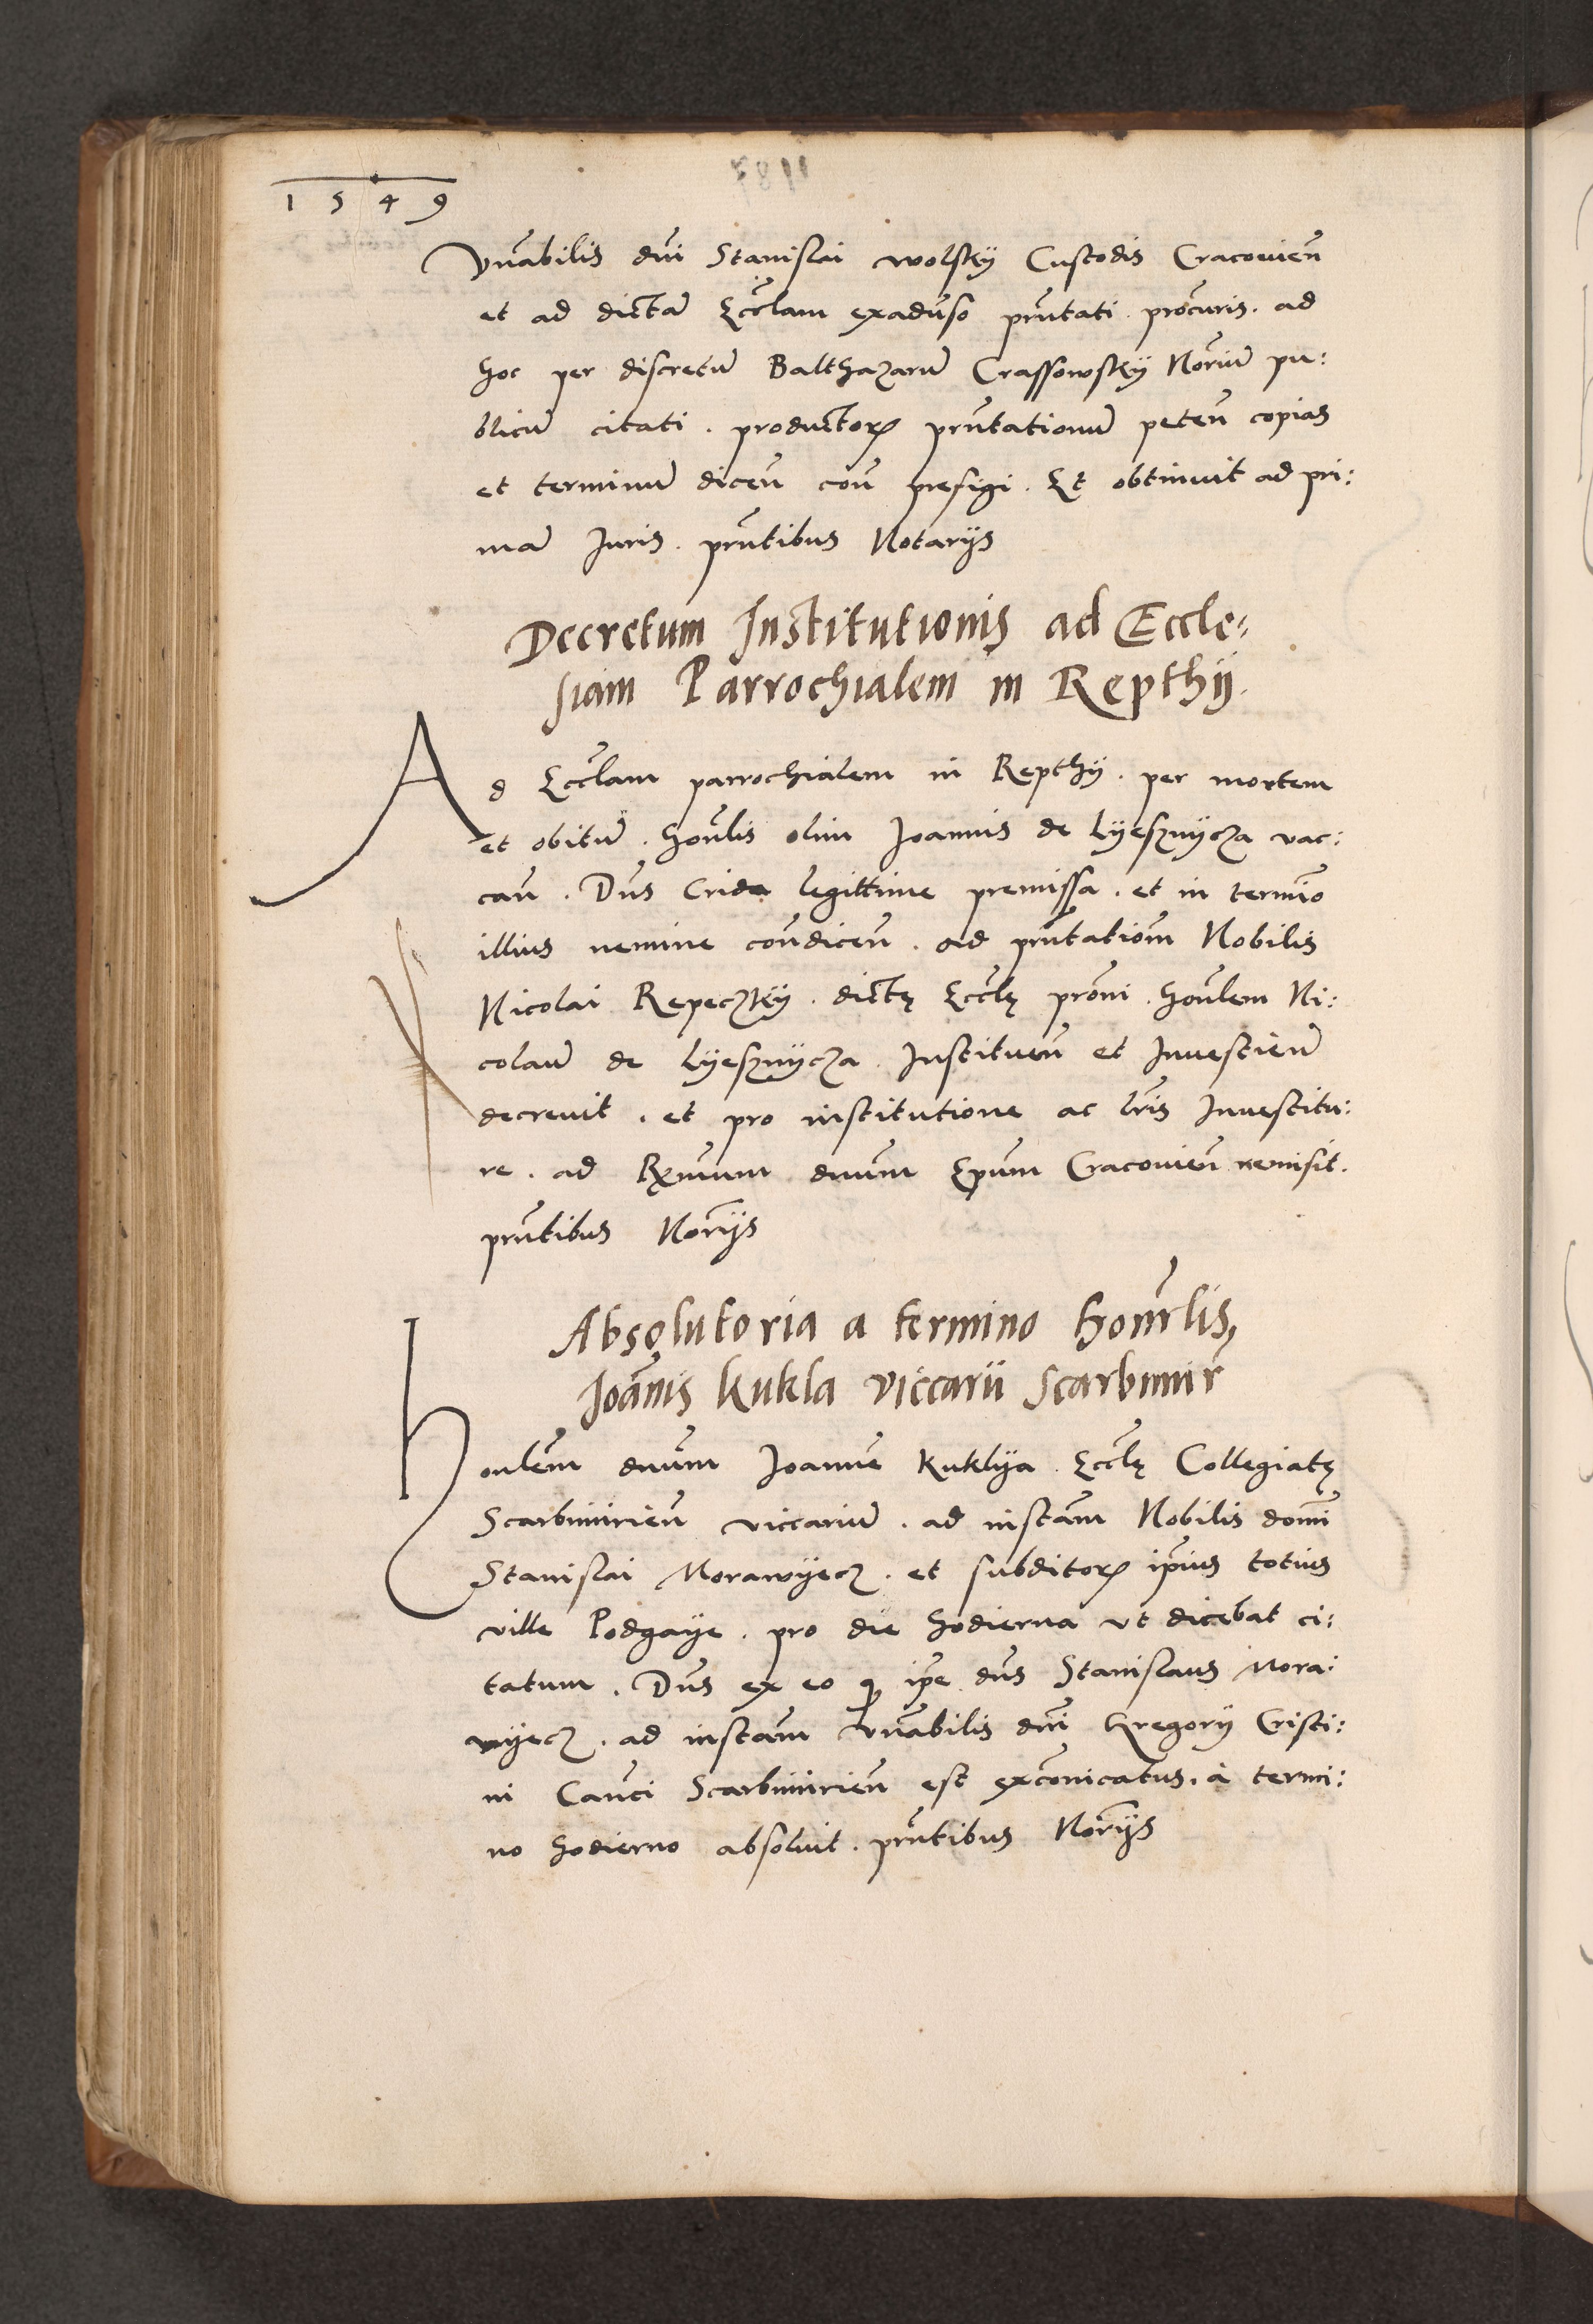 1549
Vnabilis dni Stanislai Wolsky Custodis Cracouien
et ad dictã Ecclam exaduso pntati procuris. ad
hoc per discretũ Balthazarũ Crassowsky Noriũ pu:
blicũ citati. productorꝝ pntationũ peten copias
et terminũ dicen con prefigi. Et obtinuit ad pri:
mã Juris. pntibus Notarijs
Decretum Institutionis ad Eccle:
siam Parrochialem in Repthij.
Ad Ecclam parrochialem in Repthÿ. per mortem
et obitũ. honlis olim Joannis de Lÿesznÿcza vac:
can. Dns Crida legittime premissa. et in termino
illius nemine condicen. ad pntationem Nobilis
Nicolai Repeczkÿ. dictę Ecclę proni. honlem Ni:
colaũ de Lÿesznÿcza. Instituen et Inuestien
decreuit. et pro institutione ac lris Inuestitu:
re. ad Rx̃mum dnum Epum Cracouien remisit.
pntibus Norijs
Absolutoria a termino honrlis
Joãnis Kukla viccarii Scarbimir
Honlem dnum Joannẽ Kuklÿa. Ecclę Collegiatę
Scarbimirien viccariũ. ad instam Nobilis domi
Stanislai Morawÿecz. et subditorꝝ ipius totius
ville Podgaÿe. pro die hodierna vt dicebat ci:
tatum. Dns ex eo ꝙ ipe dns Stanislaus Mora:
wÿecz. ad instam Vnabilis dni Gregorij Cristi:
ni Canci Scarbimirien est exconicatus. à termi:
no hodierno absoluit. pntibus Norijs